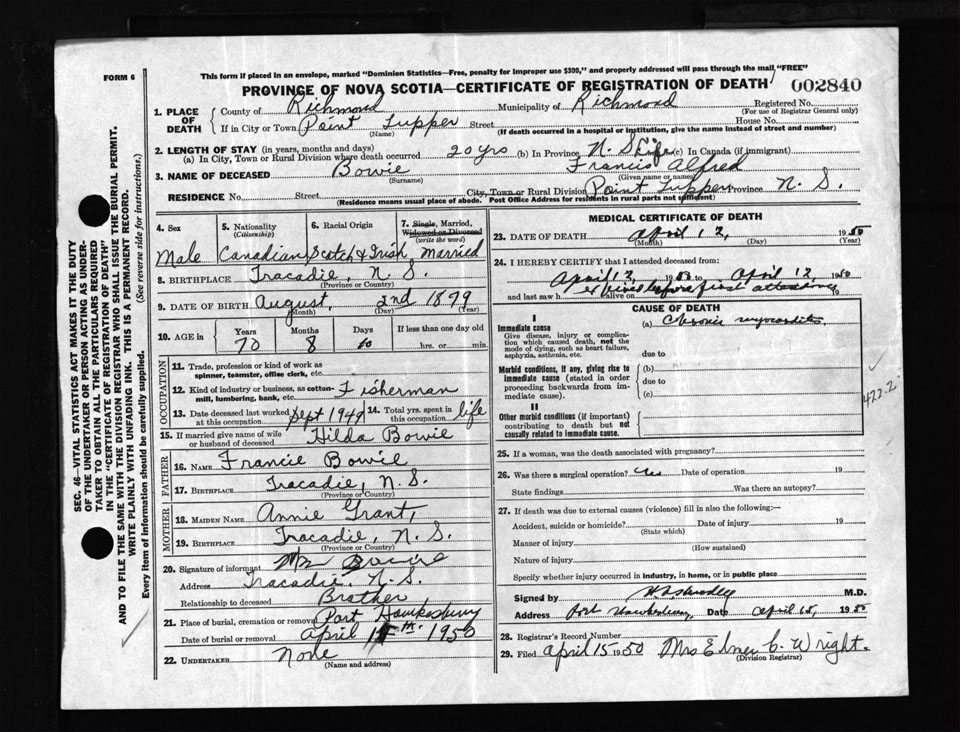 FORM 6
This form if placed in an envelope, marked "Dominion Statistics—Free, penalty for improper use $300," and properly addressed will pass through the mail "FREE"
PROVINCE OF NOVA SCOTIA—CERTIFICATE OF REGISTRATION OF DEATH 002840
1. PLACE OF DEATH County of Richmond Municipality of Richmond Registered No.
(For use of Registrar General only)
If in City or Town Point Tupper Street House No.
(Name) (If death occurred in a hospital or institution, give the name instead of street and number)
2. LENGTH OF STAY (in years, months and days)
(a) In City, Town or Rural Division where death occurred 20 yrs (b) In Province N. S. Life (c) In Canada (if immigrant)
3. NAME OF DECEASED Bowie Francis Alfred
(Surname) (Given name or names)
RESIDENCE No. Street City, Town or Rural Division Point Tupper Province N. S.
(Residence means usual place of abode. Post Office Address for residents in rural parts not sufficient)
4. Sex
Male
5. Nationality
(Citizenship)
Canadian
6. Racial Origin
Scotch & Irish
7. Single, Married, Widowed or Divorced
(write the word)
Married
8. BIRTHPLACE Tracadie, N. S.
(Province or Country)
9. DATE OF BIRTH August 2nd 1879
(Month) (Day) (Year)
10. AGE in Years Months Days If less than one day old
70 8 10 hrs. or min.
OCCUPATION
11. Trade, profession or kind of work as spinner, teamster, office clerk, etc.
12. Kind of industry or business, as cotton-mill, lumbering, bank, etc. Fisherman
13. Date deceased last worked at this occupation Sept 1949 14. Total yrs. spent in this occupation life
15. If married give name of wife or husband of deceased Hilda Bowie
FATHER
16. NAME Francie Bowie
17. BIRTHPLACE Tracadie, N. S.
(Province or Country)
MOTHER
18. MAIDEN NAME Annie Grant,
19. BIRTHPLACE Tracadie, N. S.
(Province or Country)
20. Signature of informant Bowie
Address Tracadie, N. S.
Relationship to deceased Brother
21. Place of burial, cremation or removal Port Hawkesbury
Date of burial or removal April 1950
22. UNDERTAKER None
(Name and address)
MEDICAL CERTIFICATE OF DEATH
23. DATE OF DEATH April 12, 1950
(Month) (Day) (Year)
24. I HEREBY CERTIFY that I attended deceased from:
April 12 1950 to April 12, 1950
and last saw h alive on before first attendance 19
CAUSE OF DEATH
I
Immediate cause (a) Chronic myocarditis
Give disease, injury or complication which caused death, not the mode of dying, such as heart failure, asphyxia, asthenia, etc.
due to
Morbid conditions, if any, giving rise to immediate cause (stated in order proceeding backwards from immediate cause).
(b)
due to
(c)
422.2
II
Other morbid conditions (if important) contributing to death but not causally related to immediate cause.
25. If a woman, was the death associated with pregnancy?
26. Was there a surgical operation? Date of operation 19
State findings Was there an autopsy?
27. If death was due to external causes (violence) fill in also the following:—
Accident, suicide or homicide? Date of injury 19
(State which)
Manner of injury
(How sustained)
Nature of injury
Specify whether injury occurred in industry, in home, or in public place
Signed by M.D.
Address Port Hawkesbury Date April 15, 1950
28. Registrar's Record Number
29. Filed April 15 1950 Mrs Elmer C. Wright.
(Division Registrar)
SEC. 46—VITAL STATISTICS ACT MAKES IT THE DUTY
OF THE UNDERTAKER OR PERSON ACTING AS UNDER-
TAKER TO OBTAIN ALL THE PARTICULARS REQUIRED
IN THE "CERTIFICATE OF REGISTRATION OF DEATH"
AND TO FILE THE SAME WITH THE DIVISION REGISTRAR WHO SHALL ISSUE THE BURIAL PERMIT.
WRITE PLAINLY WITH UNFADING INK. THIS IS A PERMANENT RECORD.
Every item of information should be carefully supplied. (See reverse side for instructions.)